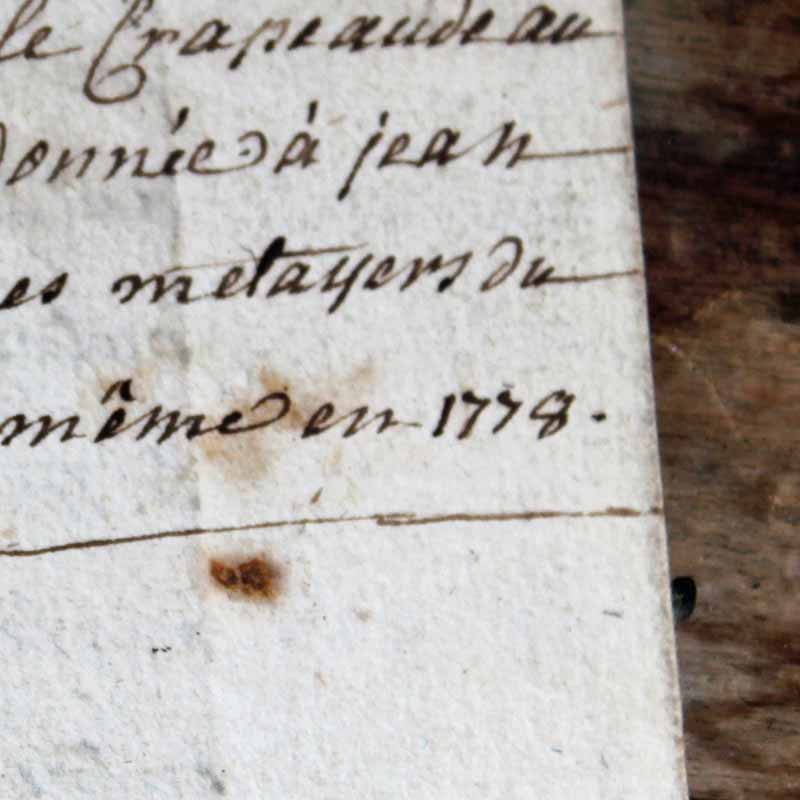 le Crapeaudeau
donnée à jean
es metayers du
même en 1778.